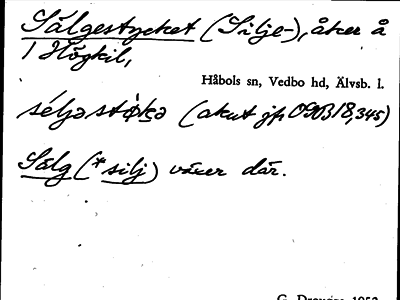 Sälgestycket (Silje-), åker å
1 Högkil,
Håbols sn, Vedbo hd, Älvsb. l.
séljəstø̀kə (akut jfr 090318,345)
Sälg (*silj) växer där.